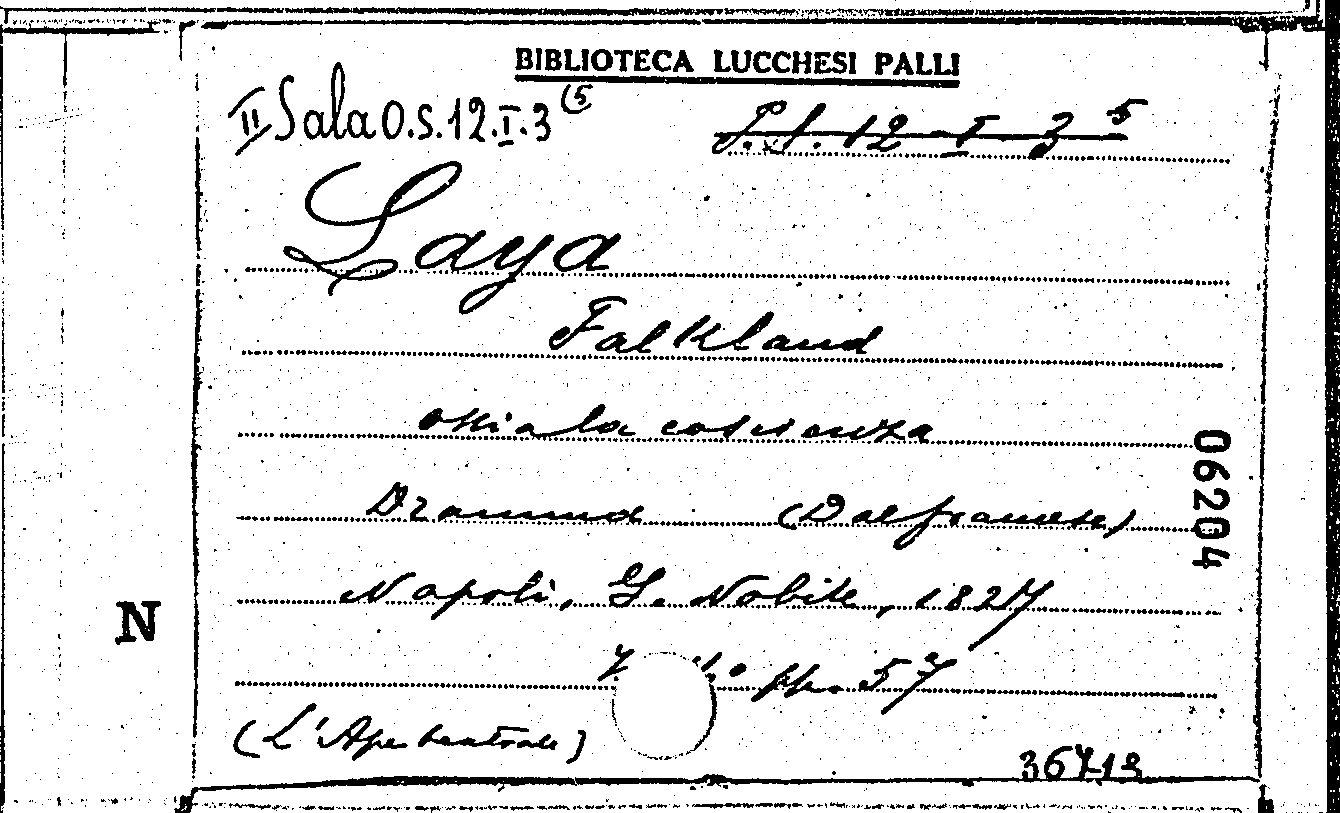 BIBLIOTECA LUCCHESI PALLI
II Sala O.S.12.I.3 (5
12 I 3 5
Laya
Falkland
ossia la coscienza
Dramma (Dal francese)
Napoli, G. Nobile, 1827
pp. 57
(L'Ape teatrale)
06204
N